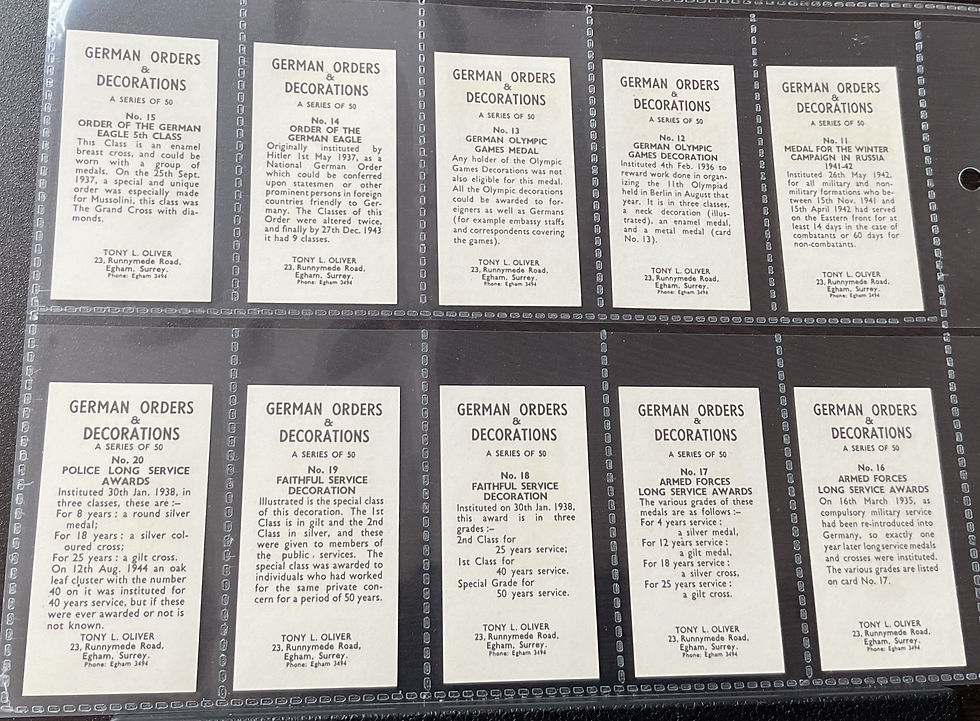 GERMAN ORDERS
&
DECORATIONS
A SERIES OF 50
No. 15
ORDER OF THE GERMAN
EAGLE 5th CLASS
This Class is an enamel
breast cross, and could be
worn with a group of
medals. On the 25th Sept.
1937, a special and unique
order was especially made
for Mussolini, this class was
The Grand Cross with dia-
monds.
TONY L. OLIVER
23, Runnymede Road,
Egham, Surrey.
Phone: Egham 3494
GERMAN ORDERS
&
DECORATIONS
A SERIES OF 50
No. 14
ORDER OF THE
GERMAN EAGLE
Originally instituted by
Hitler 1st May 1937, as a
National German Order
which could be conferred
upon statesmen or other
prominent persons in foreign
countries friendly to Ger-
many. The Classes of this
Order were altered twice,
and finally by 27th Dec. 1943
it had 9 classes.
TONY L. OLIVER
23, Runnymede Road,
Egham, Surrey.
Phone: Egham 3494
GERMAN ORDERS
&
DECORATIONS
A SERIES OF 50
No. 13
GERMAN OLYMPIC
GAMES MEDAL
Any holder of the Olympic
Games Decorations was not
also eligible for this medal.
All the Olympic decorations
could be awarded to for-
eigners as well as Germans
(for example embassy staffs
and correspondents covering
the games).
TONY L. OLIVER
23, Runnymede Road,
Egham, Surrey.
Phone: Egham 3494
GERMAN ORDERS
&
DECORATIONS
A SERIES OF 50
No. 12
GERMAN OLYMPIC
GAMES DECORATION
Instituted 4th Feb. 1936 to
reward work done in organ-
izing the 11th Olympiad
held in Berlin in August that
year. It is in three classes,
a neck decoration (illus-
trated), an enamel medal,
and a metal medal (card
No. 13).
TONY L. OLIVER
23, Runnymede Road,
Egham, Surrey.
Phone: Egham 3494
GERMAN ORDERS
&
DECORATIONS
A SERIES OF 50
No. 11
MEDAL FOR THE WINTER
CAMPAIGN IN RUSSIA
1941-42
Instituted 26th May 1942.
for all military and non-
military formations who be-
tween 15th Nov. 1941 and
15th April 1942 had served
on the Eastern front for at
least 14 days in the case of
combatants or 60 days for
non-combatants.
TONY L. OLIVER
23, Runnymede Road,
Egham, Surrey.
Phone: Egham 3494
GERMAN ORDERS
&
DECORATIONS
A SERIES OF 50
No. 20
POLICE LONG SERVICE
AWARDS
Instituted 30th Jan. 1938, in
three classes, these are :–
For 8 years : a round silver
medal;
For 18 years : a silver col-
oured cross;
For 25 years : a gilt cross.
On 12th Aug. 1944 an oak
leaf cluster with the number
40 on it was instituted for
40 years service, but if these
were ever awarded or not is
not known.
TONY L. OLIVER
23, Runnymede Road,
Egham, Surrey.
Phone: Egham 3494
GERMAN ORDERS
&
DECORATIONS
A SERIES OF 50
No. 19
FAITHFUL SERVICE
DECORATION
Illustrated is the special class
of this decoration. The 1st
Class is in gilt and the 2nd
Class in silver, and these
were given to members of
the public services. The
special class was awarded to
individuals who had worked
for the same private con-
cern for a period of 50 years.
TONY L. OLIVER
23, Runnymede Road,
Egham, Surrey.
Phone: Egham 3494
GERMAN ORDERS
&
DECORATIONS
A SERIES OF 50
No. 18
FAITHFUL SERVICE
DECORATION
Instituted on 30th Jan. 1938,
this award is in three
grades :–
2nd Class for
25 years service;
1st Class for
40 years service.
Special Grade for
50 years service.
TONY L. OLIVER
23, Runnymede Road,
Egham, Surrey.
Phone: Egham 3494
GERMAN ORDERS
&
DECORATIONS
A SERIES OF 50
No. 17
ARMED FORCES
LONG SERVICE AWARDS
The various grades of these
medals are as follows :–
For 4 years service :
a silver medal,
For 12 years service :
a gilt medal,
For 18 years service :
a silver cross,
For 25 years service :
a gilt cross.
TONY L. OLIVER
23, Runnymede Road,
Egham, Surrey.
Phone: Egham 3494
GERMAN ORDERS
&
DECORATIONS
A SERIES OF 50
No. 16
ARMED FORCES
LONG SERVICE AWARDS
On 16th March 1935, as
compulsory military service
had been re-introduced into
Germany, so exactly one
year later longservice medals
and crosses were instituted.
The various grades are listed
on card No. 17.
TONY L. OLIVER
23, Runnymede Road,
Egham, Surrey.
Phone: Egham 3494